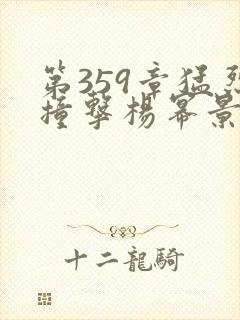 第359章猛烈
撞撃楊冪景
十二龍騎